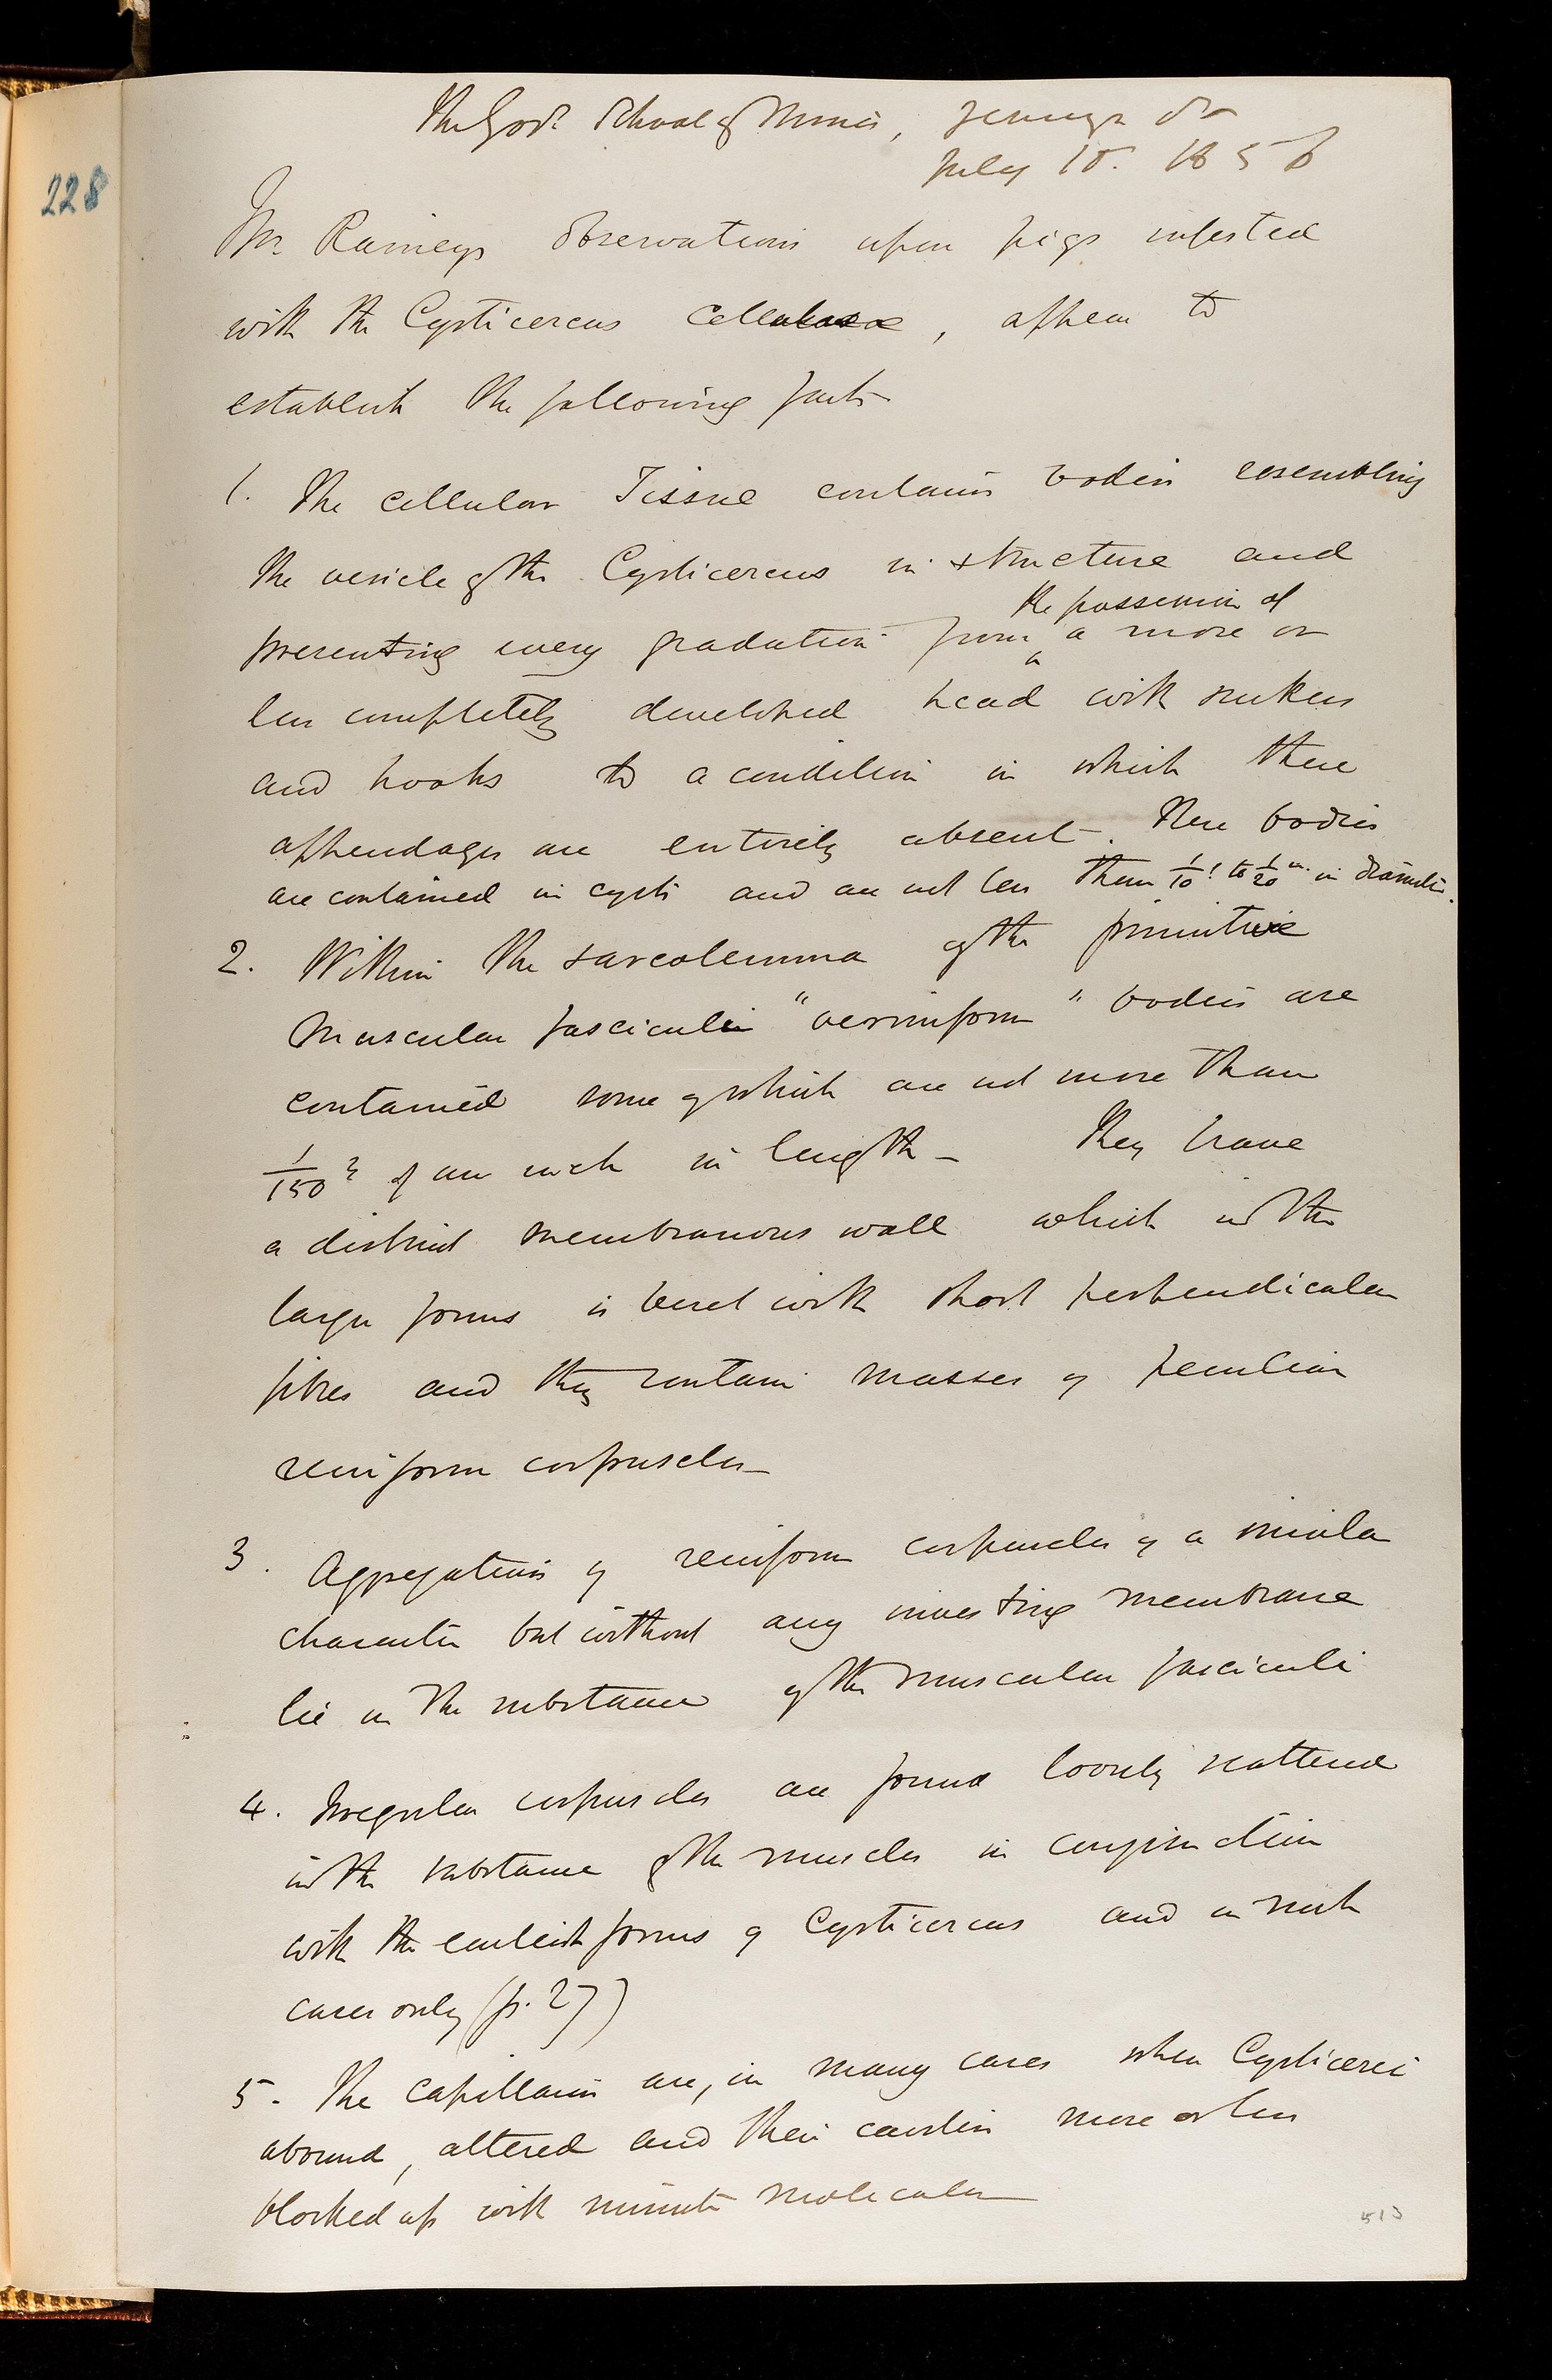 228
The Govt School of Mines, Jermyn St
July 15. 1856
Mr Rainey's Observations upon pigs infested
with the Cysticercus Cellulosae, appear to
establish the following facts
1. The cellular Tissue contains bodies resembling
the vesicle of the Cysticercus in structure and
the possession of
presenting every gradation from a more or
less completely developed head with suckers
and hooks to a condition in which these
appendages are entirely absent. These bodies
are contained in cysts and are not less than 1/10 to 1/20 in. in diameter.
2. Within the sarcolemma of the primitive
muscular fasciculi "vermiform" bodies are
contained some of which are not more than
1/150 of an inch in length – They have
a distinct membranous wall which in the
larger forms is beset with short perpendicular
fibres and they contain masses of peculiar
reniform corpuscles –
3. Aggregations of reniform corpuscles of a similar
character but without any investing membrane
lie in the substance of the muscular fasciculi
4. Irregular corpuscles are found loosely scattered
in the substance of the muscles in conjunction
with the earliest forms of Cysticercus and in such
cases only (p. 27)
5. The capillaries are, in many cases when Cysticerci
abound, altered and their cavities more or less
blocked up with minute molecular
513